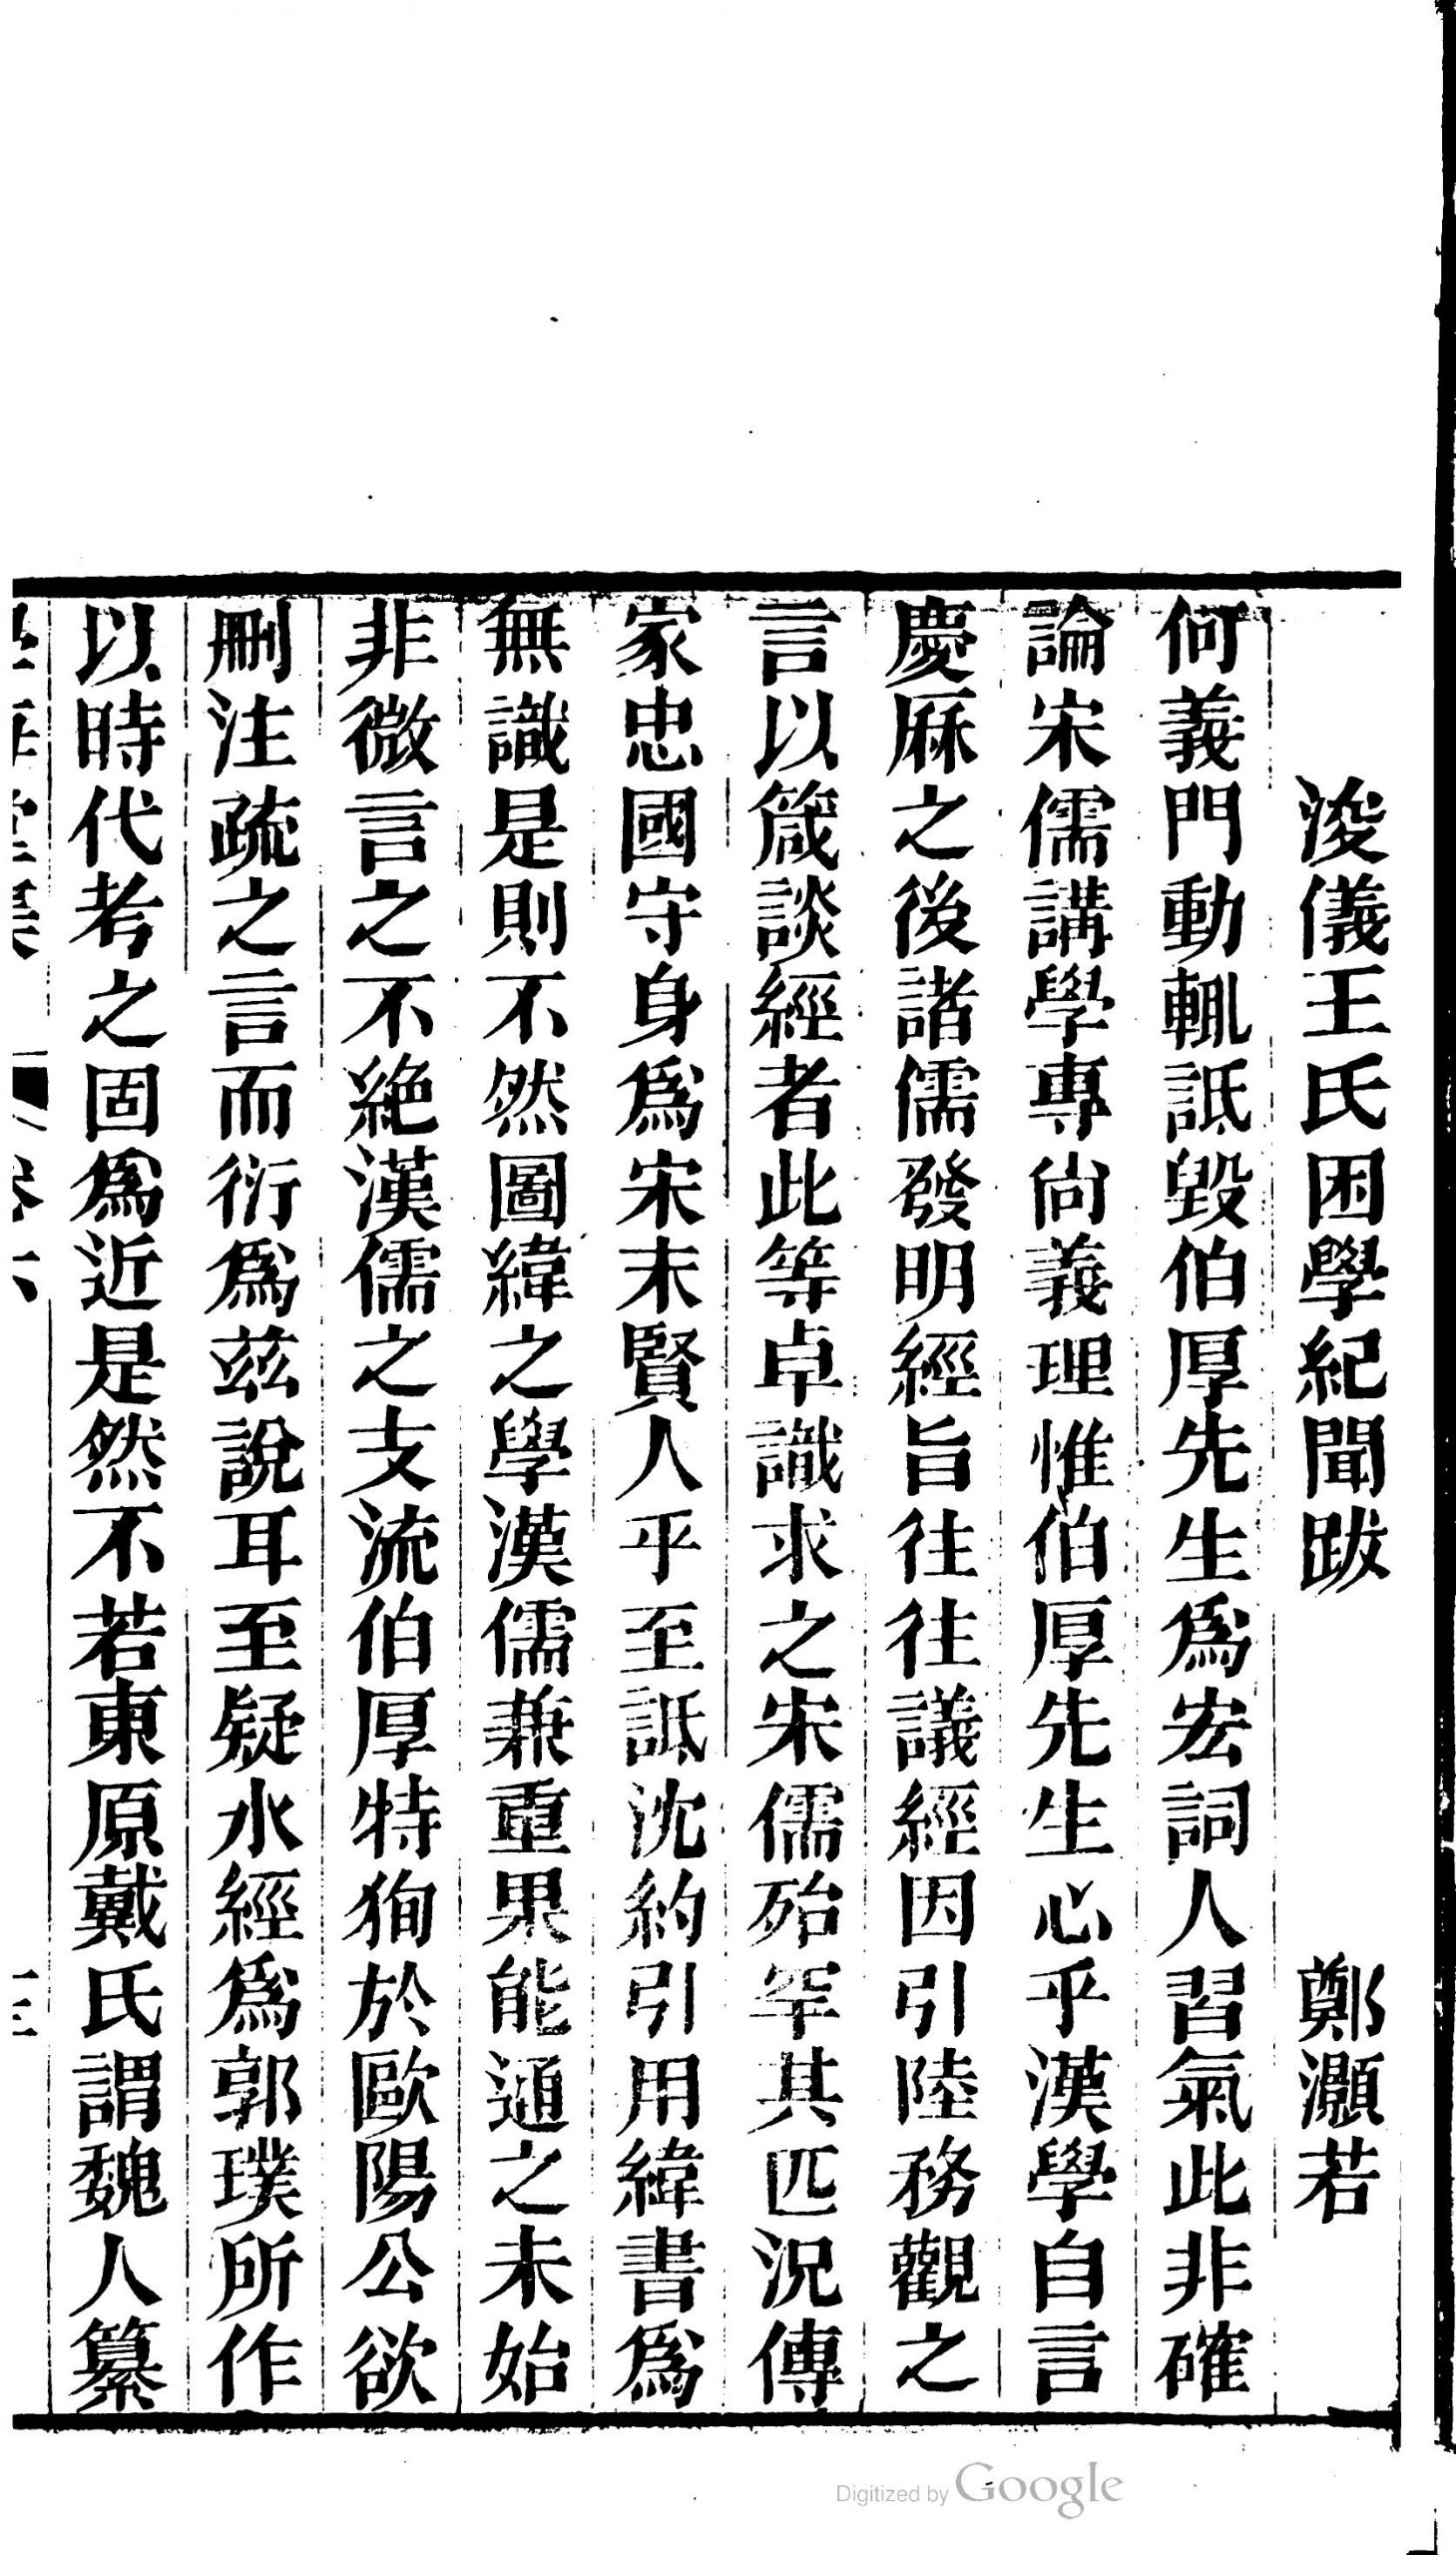 浚儀王氏困學紀聞跋　鄭灝若
何義門動輒詆毀伯厚先生爲宏詞人習氣此非確
論宋儒講學專尚義理惟伯厚先生心乎漢學自言
慶厤之後諸儒發明經旨往往議經因引陸務觀之
言以箴談經者此等卓識求之宋儒殆罕其匹況傳
家忠國守身爲宋末賢人乎至詆沈約引用緯書爲
無識是則不然圖緯之學漢儒兼重果能通之未始
非微言之不絶漢儒之支流伯厚特狥於歐陽公欲
刪注疏之言而衍爲兹說耳至疑水經爲郭璞所作
以時代考之固爲近是然不若東原戴氏謂魏人纂
Digitized by Google